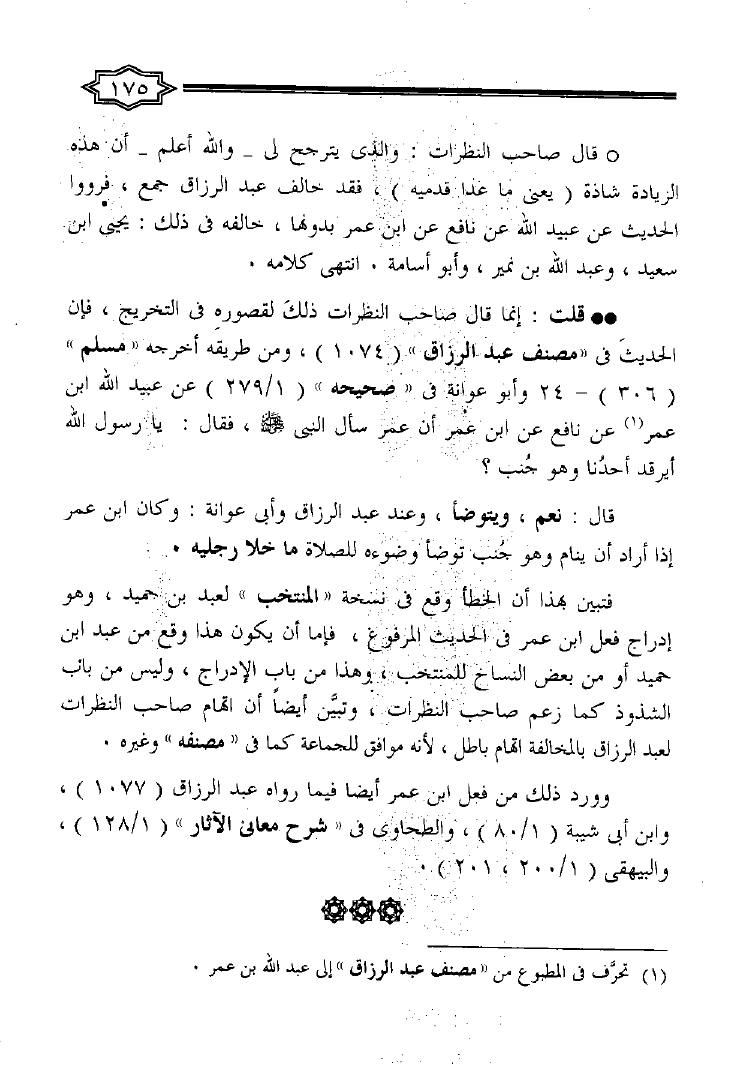 ١٧٥
○ قال صاحب النظرات : والذى يترجح لى _ والله أعلم _ أن هذه
الزيادة شاذة ( يعنى ما عدا قدميه ) ، فقد خالف عبد الرزاق جمع ، فرووا
الحديث عن عبيد الله عن نافع عن ابن عمر بدونها ، خالفه فى ذلك : يحيى ابن
سعيد ، وعبد الله بن نمير ، وأبو أسامة . انتهى كلامه .
●● قلت : إنما قال صاحب النظرات ذلك لقصوره فى التخريج ، فإن
الحديث فى «مصنف عبد الرزاق» ( ١٠٧٤ ) ، ومن طريقه أخرجه «مسلم»
( ٣٠٦ ) – ٢٤ وأبو عوانة فى « صحيحه » ( ٢٧٩/١ ) عن عبيد الله ابن
عمر(١) عن نافع عن ابن عمر أن عمر سأل النبى ﷺ ، فقال : يا رسول الله
أيرقد أحدُنا وهو جُنب ؟
قال : نعم ، ويتوضأ ، وعند عبد الرزاق وأبى عوانة : وكان ابن عمر
إذا أراد أن ينام وهو جُنب توضأ وضوءه للصلاة ما خلا رجليه .
فتبين بهذا أن الخطأ وقع فى نسخة «المنتخب » لعبد بن حميد ، وهو
إدراج فعل ابن عمر فى الحديث المرفوع ، فإما أن يكون هذا وقع من عبد ابن
حميد أو من بعض النساخ للمنتخب ، وهذا من باب الإدراج ، وليس من باب
الشذوذ كما زعم صاحب النظرات ، وتبيَّن أيضاً أن اتهام صاحب النظرات
لعبد الرزاق بالمخالفة اتهام باطل ، لأنه موافق للجماعة كما فى « مصنفه » وغيره .
وورد ذلك من فعل ابن عمر أيضا فيما رواه عبد الرزاق ( ١٠٧٧ ) ،
وابن أبى شيبة ( ٨٠/١ ) ، والطحاوى فى « شرح معانى الآثار » ( ١٢٨/١ ) ،
والبيهقى ( ٢٠٠/١ ، ٢٠١ ) .
(١) تحرَّف فى المطبوع من «مصنف عبد الرزاق» إلى عبد الله بن عمر .